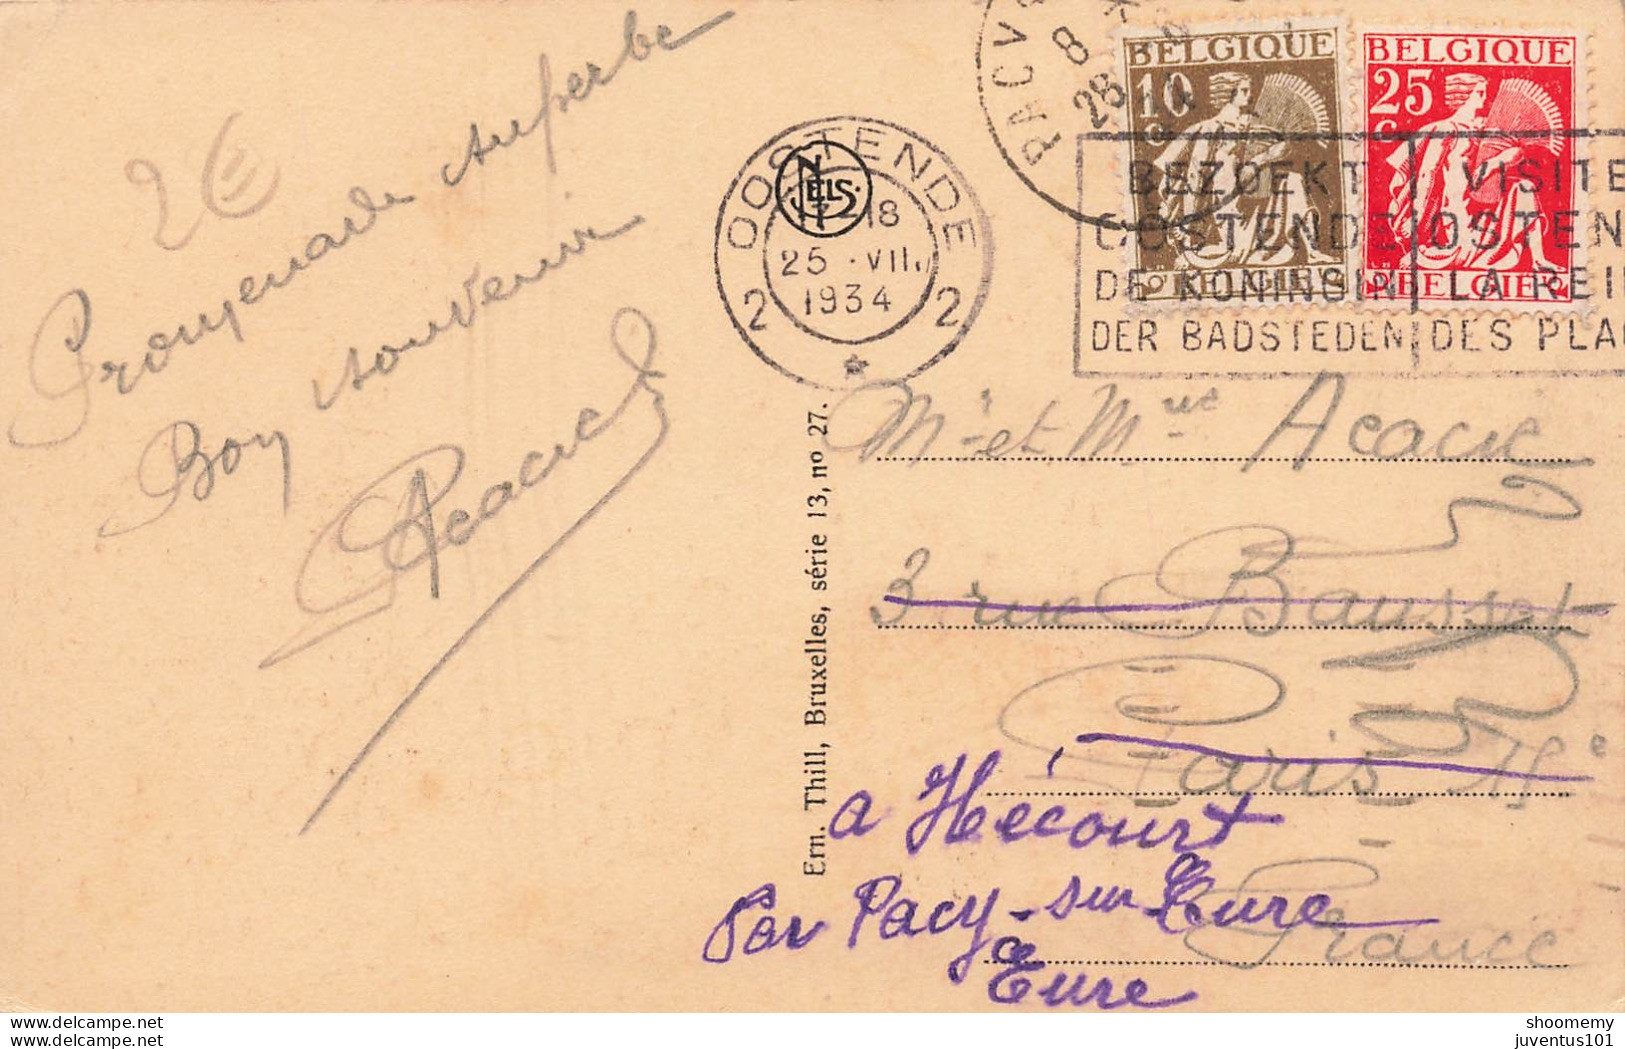 2€
Promenade superbe
Bon souvenir
Acacie
OOSTENDE
NELS
18
25 · VII.
1934
2 2
PACY
8
28
BELGIQUE
10
C
BELGIE
BELGIQUE
25
C
BELGIE
BEZOEKT
OOSTENDE
DE KONINGIN
DER BADSTEDEN
VISITE
OSTEN
LA REI
DES PLA
Ern. Thill, Bruxelles, série 13, nº 27.
Mr et Mme Acacie
3 rue Bausset
Paris 15e
France
a Hécourt
Par Pacy-sur-Eure
Eure
postcards-from-the-past.com
delcampe.net
shoomemy
juventus101